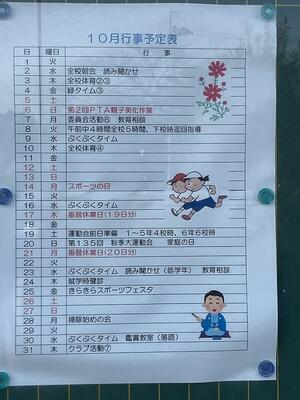 10月行事予定表
日 曜日 行事
1 火
2 水 全校朝会 読み聞かせ
3 木 全校体育②③
4 金 緑タイム③
5 土
6 日 第2回PTA親子美化作業
7 月 委員会活動⑥ 教育相談
8 火 午前中4時間全校5時間、下校時巡回指導
9 水 ぷくぷくタイム
10 木 全校体育④
11 金
12 土
13 日
14 月 スポーツの日
15 火
16 水 ぷくぷくタイム
17 木 振替休業日(19日分)
18 金
19 土 運動会前日準備 1～5年4校時、6年6校時
20 日 第135回 秋季大運動会 家庭の日
21 月 振替休業日(20日分)
22 火
23 水 ぷくぷくタイム 読み聞かせ(低学年) 教育相談
24 木 就学時健診
25 金 きらきらスポーツフェスタ
26 土
27 日
28 月 掃除始めの会
29 火
30 水 ぷくぷくタイム 鑑賞教室(落語)
31 木 クラブ活動⑦